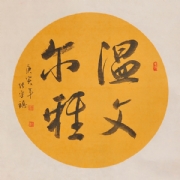 温文
尔雅
庚寅年